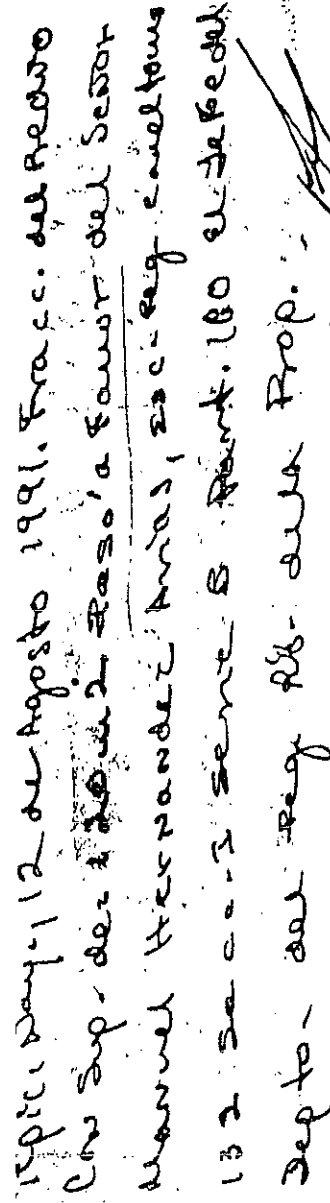 Tepic, Nay., 12 de Agosto 1991. Fracc. del Predio
con Sup. de: 200 m2. Pasó a Favor del Señor
Manuel Hernandez Arias, esc. Reg. en el tomo
132 Secc. I Serie B Part. 180 El Jefe del
Depto. del Reg. Pb. de la Prop.